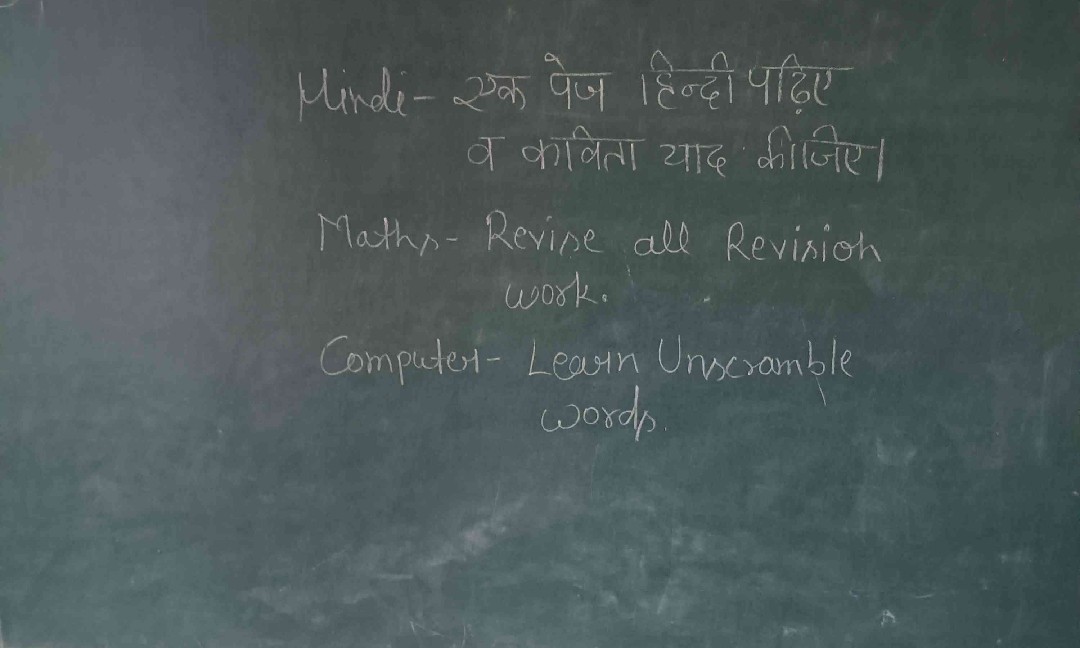 Hindi- एक पेज हिन्दी पढ़िए
व कविता याद कीजिए।
Maths- Revise all Revision
work.
Computer- Learn Unscramble
words.